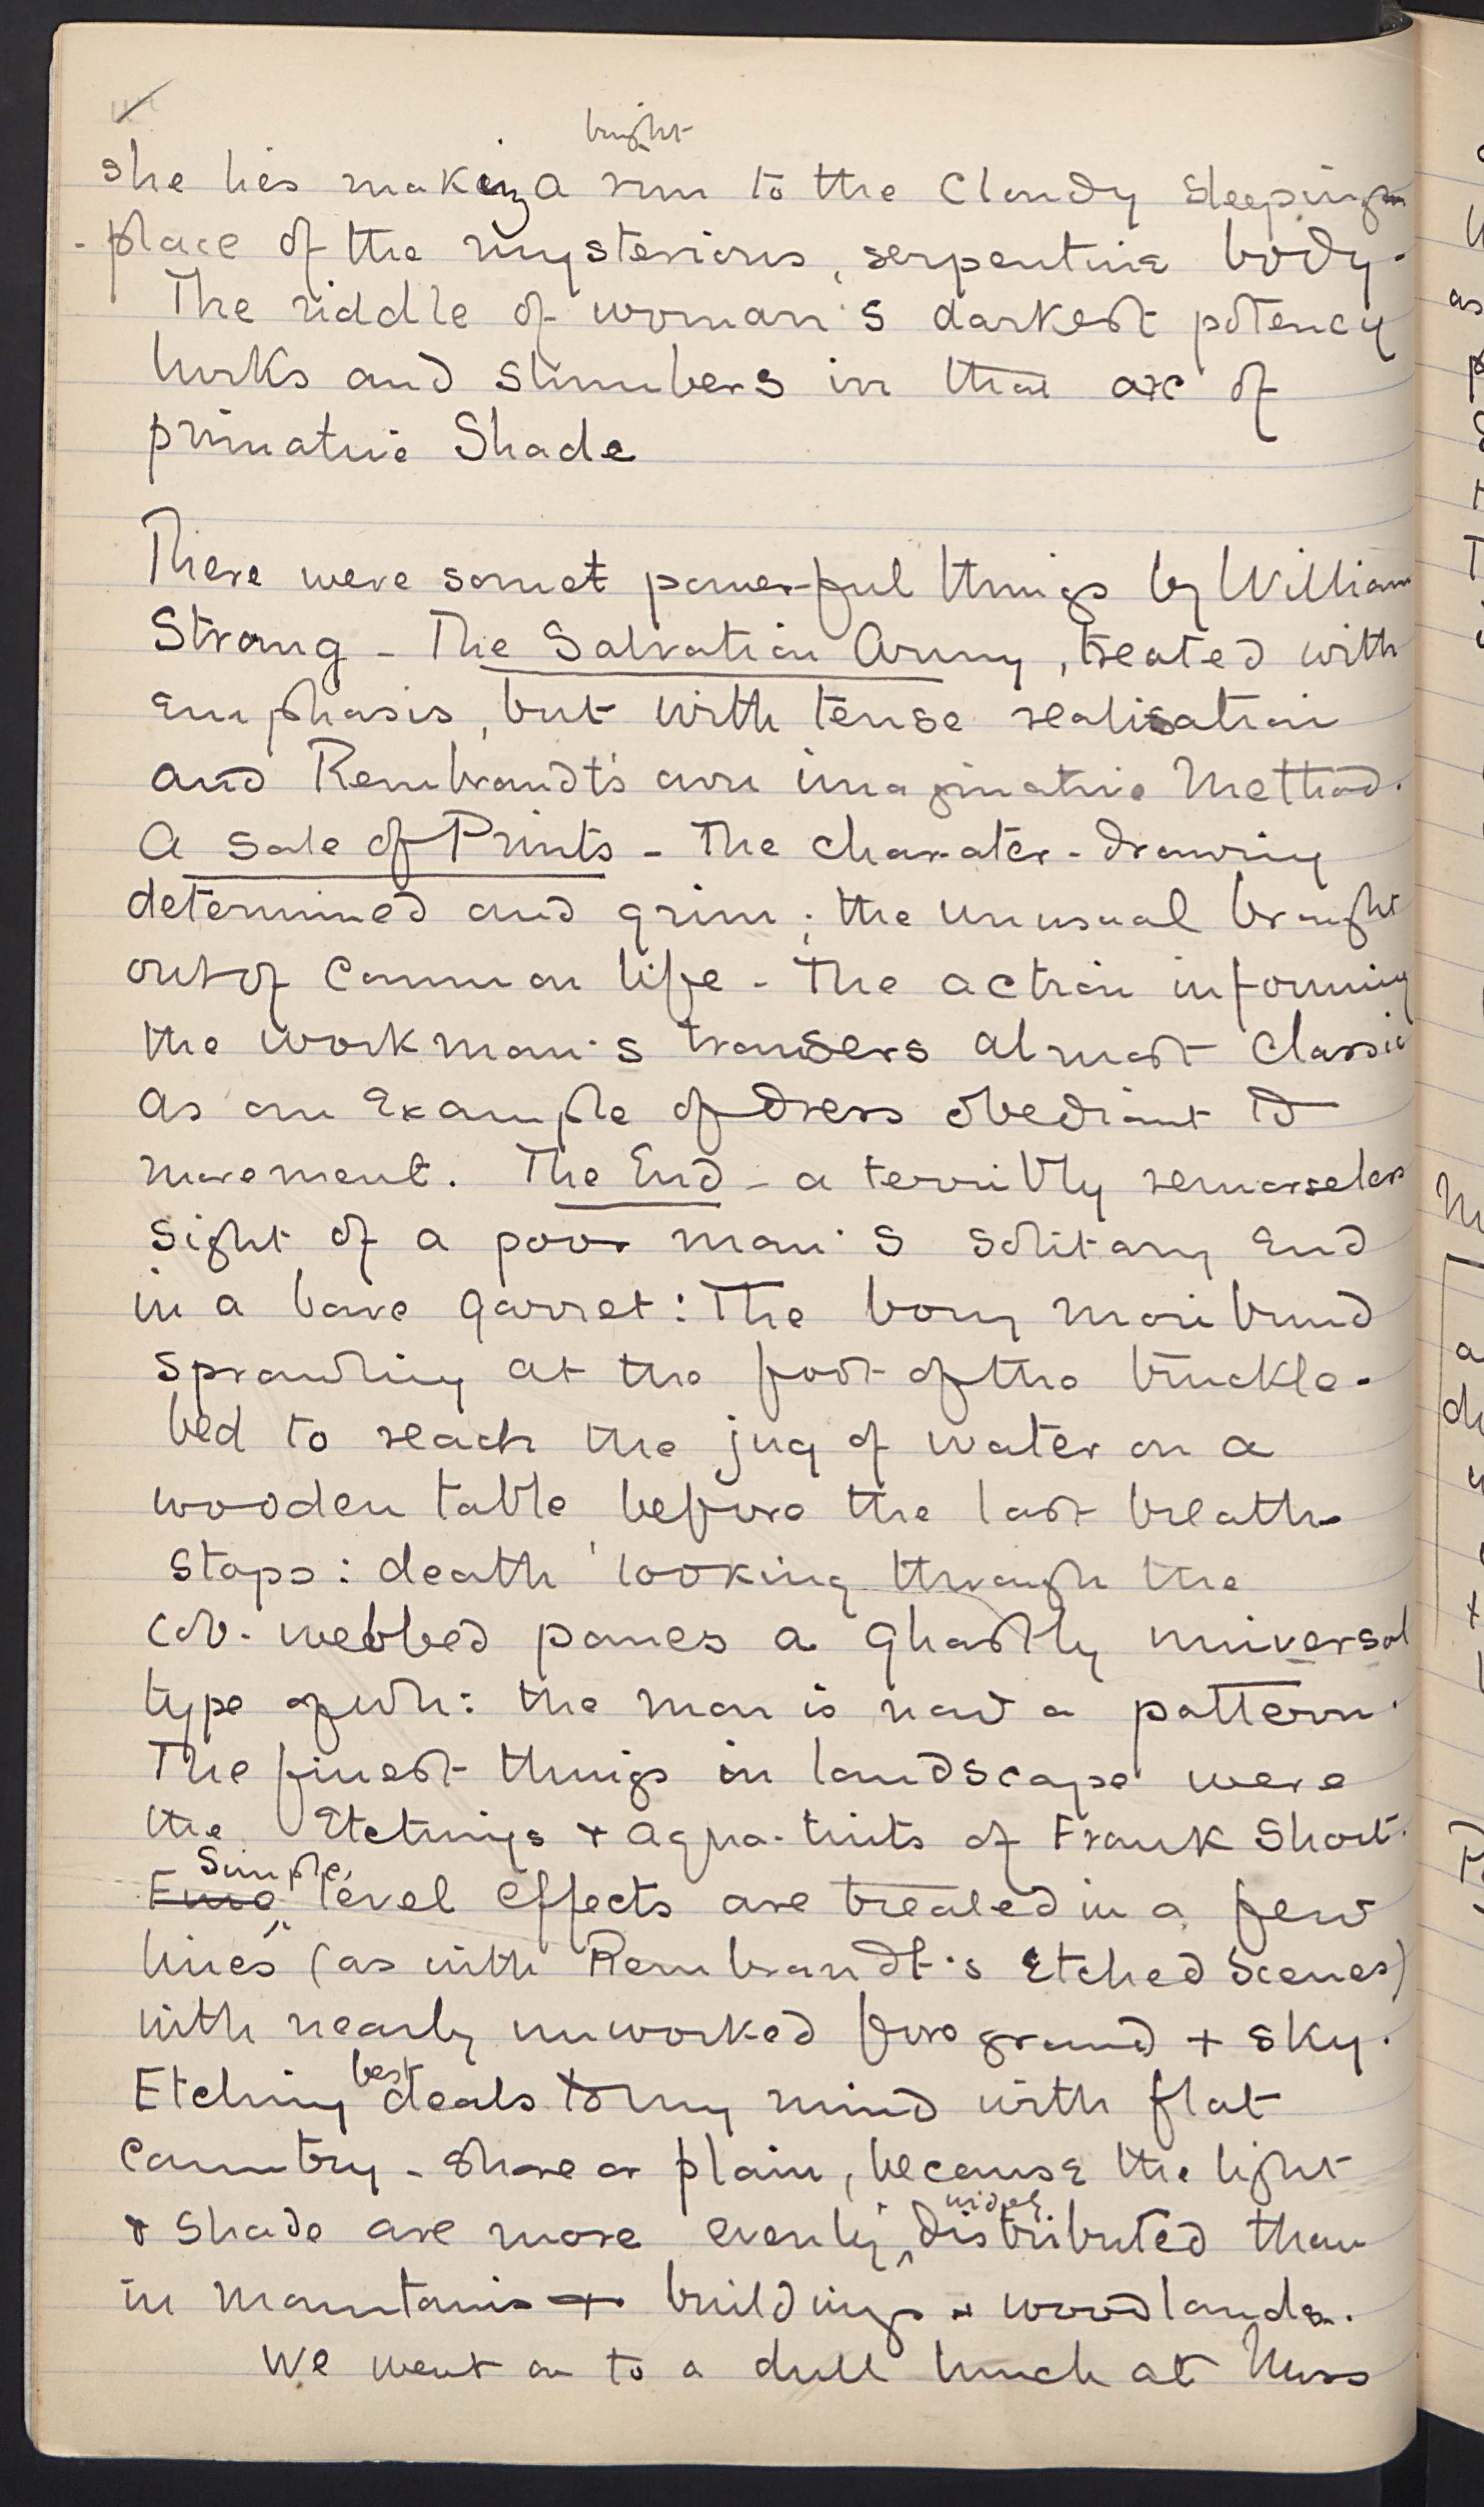 bright
she lies making a rim to the cloudy sleeping-
-place of the mysterious, serpentine body.
The riddle of woman's darkest potency
lurks and slumbers in that arc of
primative Shade
There were some powerful things by William
Strang - The Salvation Army, treated with
emphasis, but with tense realisation
and Rembrandt's own imaginative Method.
A Sale of Prints - The charater-drawing
determined and grim; the unusual brought
out of common life - The action informing
the workman's trousers almost classic
as an Example of dress obedient to
movement. The End - a terribly remorseless
sight of a poor man's solitary End
in a bare garret: The bony moribund
sprawling at the foot of the truckle-
bed to reach the jug of water on a
wooden table before the last breath
stops: death looking through the
cob-webbed panes a ghastly universal
type of wh: the man is now a pattern.
The finest things in landscape were
the Etchings + aqua-tints of Frank Short.
Simple,
level effects are treated in a few
lines (as with Rembrandt's Etched Scenes)
with nearly unworked foreground + sky.
Etching best deals to my mind with flat
Country - shore or plain, because the light
widely
+ shade are more evenly, distributed than
in mountains + buildings + woodlands.
We went on to a dull lunch at Miss